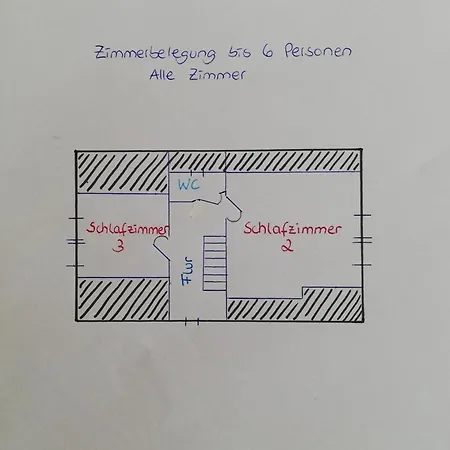 Zimmerbelegung bis 6 Personen
Alle Zimmer
WC
Schlafzimmer
3
Schlafzimmer
2
Flur